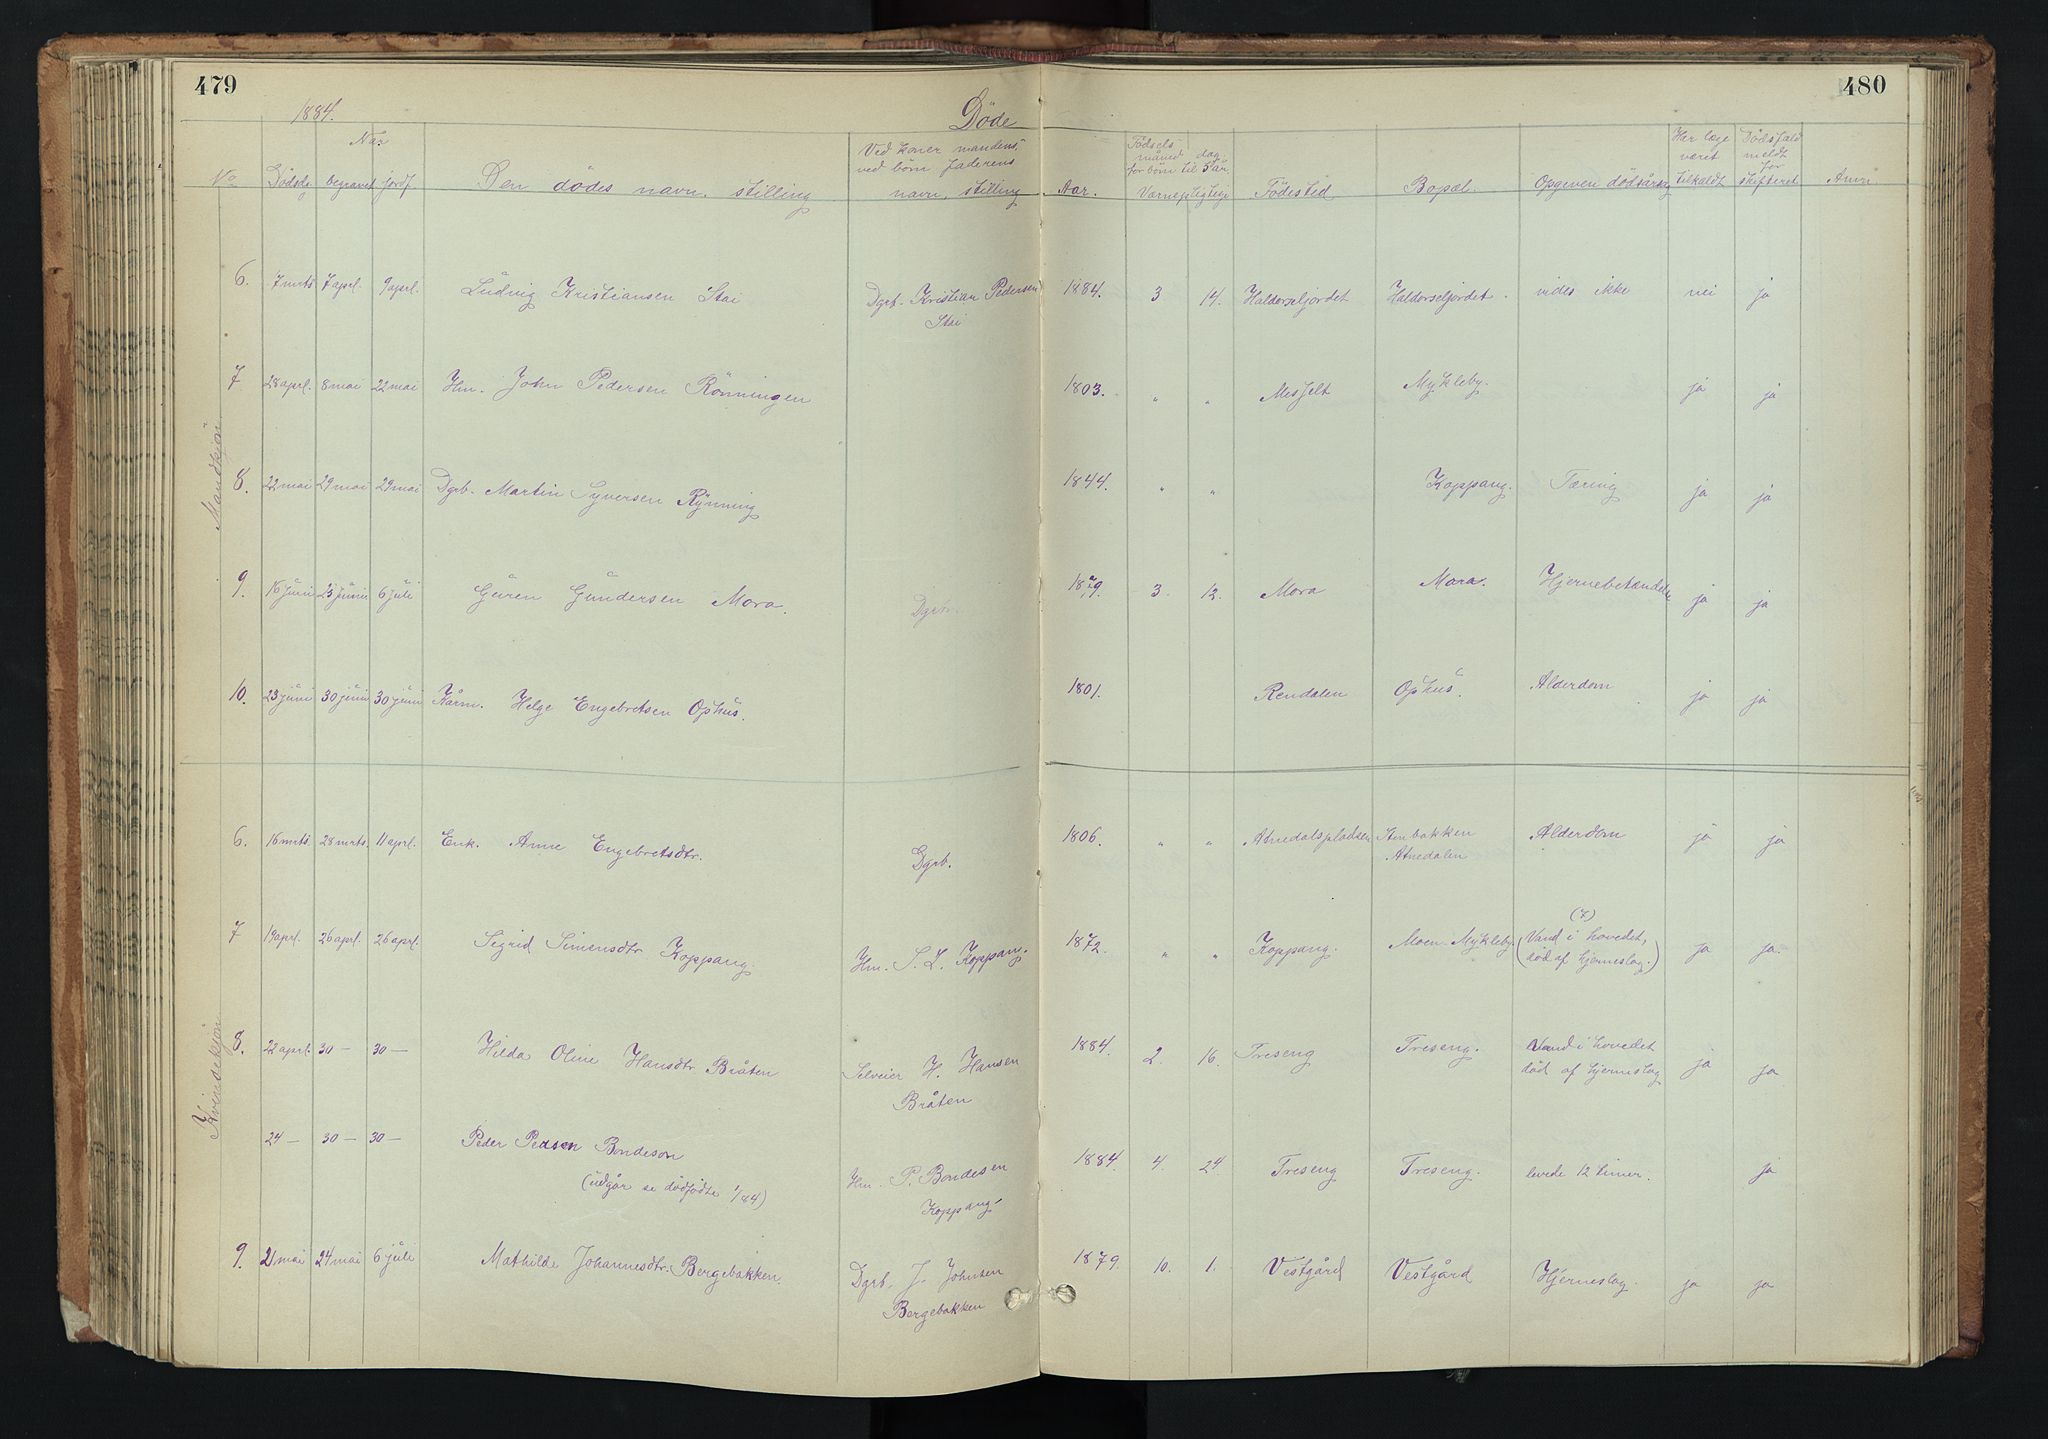 479
480
1884.
Döde
No
Når
Dødsd. begravet jordf.
Den dödes navn, stilling
Ved koner mandens, ved börn faderens navn, stilling
Aar.
Födsels måned dag for börn til 5 år
Værnepligtige
Födested
Bopæl.
Opgiven dödsårsag
Har læge været tilkaldt
Dödsfald meldt for skifteret
Anm
Mandkjøn
6. 7 mrts 7 aprl. 9 aprl. Ludvig Kristiansen Stai Dgrb. Kristian Pedersen 1884. 3 14. Haldorseljordet Haldorseljordet. vides ikke nei ja
Stai
7 28 aprl. 8 mai 22 mai Hm. John Pedersen Rönningen 1803. " " Messelt Mykleby. ja ja
8. 22 mai 29 mai 29 mai Dgrb. Martin Syversen Rÿnning 1844. " " Koppang. Tæring ja ja
9. 16 juni 23 juni 6 juli Guren Gundersen Mora. Dgrm 1879. 3. 12. Mora Mora. Hjernebetændelse ja ja
10. 23 juni 30 juni 30 juni Kårm. Helge Engebretsen Ophus. 1801. Rendalen Ophus. Alderdom ja ja
Kvindekjøn
6. 16 mrts 28 mrts. 11 aprl. Enk. Anne Engebretsdtr. Dgrb. 1806. " " Atnedalspladsen Stenbakken Alderdom ja ja
Atnedalen
7 19 aprl. 26 aprl. 26 aprl. Sigrid Simensdtr. Koppang. Hm. S. L. Koppang. 1872. " " Koppang. Moen. Mykleby. (Vand i hovedet, ja ja.
(?)
död af hjerneslag.)
8. 22 aprl. 30 — 30 — Hilda Oline Hansdtr Bråten Selveier H. Hansen 1884. 2. 16. Treseng Treseng. Vand i hovedet ja ja
Bråten död af hjerneslag
24 — 30 — 30 — Peder Pedsen Bondeson Hm. P. Bondesen 1884. 4. 24. Treseng Treseng. levede 12 timer. ja
(udgår se dödfödte 1/84) Koppang.
9. 21 mai 24 mai 6 juli Mathilde Johannesdtr. Bergebakken. Dgrb. J. Johnsen 1879. 10. 1. Vestgård Vestgård Hjerneslag. ja ja
Bergebakken